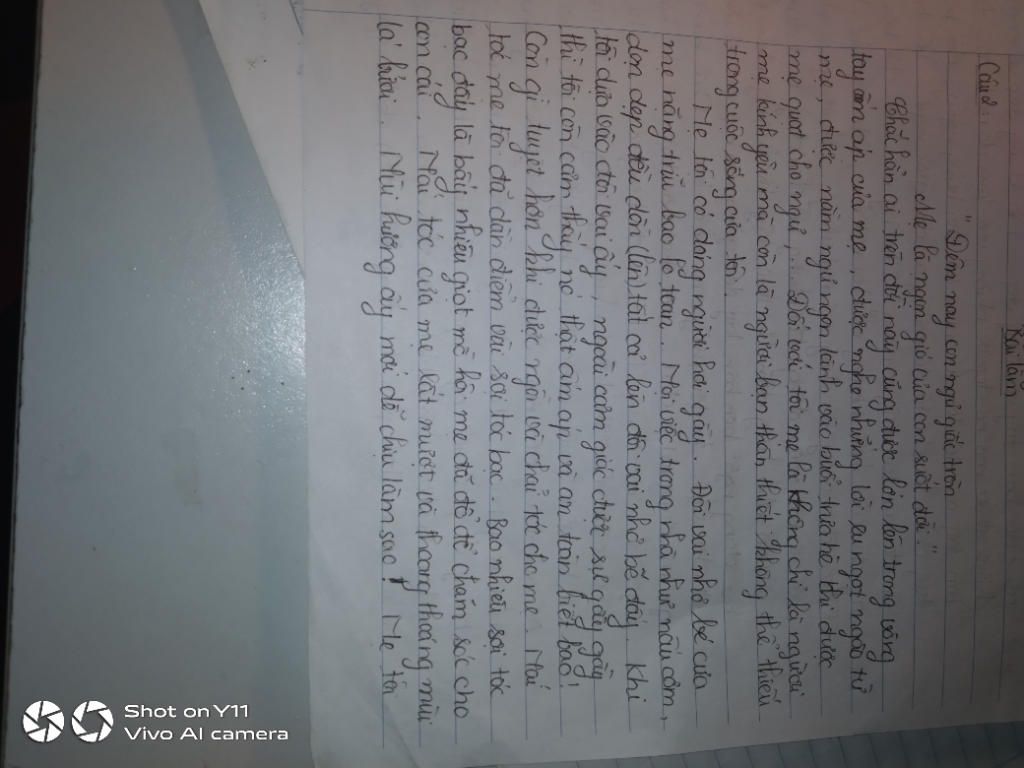 Bài làm
Câu 2:
"Đêm nay con ngủ giấc tròn
Mẹ là ngọn gió của con suốt đời."
Chắc hẳn ai trên đời này cũng được lớn lên trong vòng
tay ấm áp của mẹ, được nghe những lời ru ngọt ngào từ
mẹ, được nằm ngủ ngon lành vào buổi trưa hè thì được
mẹ quạt cho ngủ,... Đối với tôi mẹ là không chỉ là người
mẹ kính yêu mà còn là người bạn thân thiết không thể thiếu
trong cuộc sống của tôi.
Mẹ tôi có dáng người hơi gầy. Đôi vai nhỏ bé của
mẹ nặng trĩu bao lo toan. Mỗi việc trong nhà như nấu cơm,
dọn dẹp đều dồn (lên) tất cả lên đôi vai nhỏ bé đấy. Khi
tôi dựa vào đôi vai ấy, ngoài cảm giác được sự gầy gầy
thì tôi còn cảm thấy nó thật ấm áp và an toàn biết bao!
Còn gì tuyệt hơn khi được ngồi và chải tóc cho mẹ. Mái
tóc mẹ tôi đã dần điểm vài sợi tóc bạc. Bao nhiêu sợi tóc
bạc đấy là bấy nhiêu giọt mồ hôi mẹ đã đổ để chăm sóc cho
con cái. Mái tóc của mẹ rất mượt và thoang thoảng mùi
lá bưởi. Mùi hương ấy mới dễ chịu làm sao! Mẹ tôi
Shot on Y11
Vivo AI camera